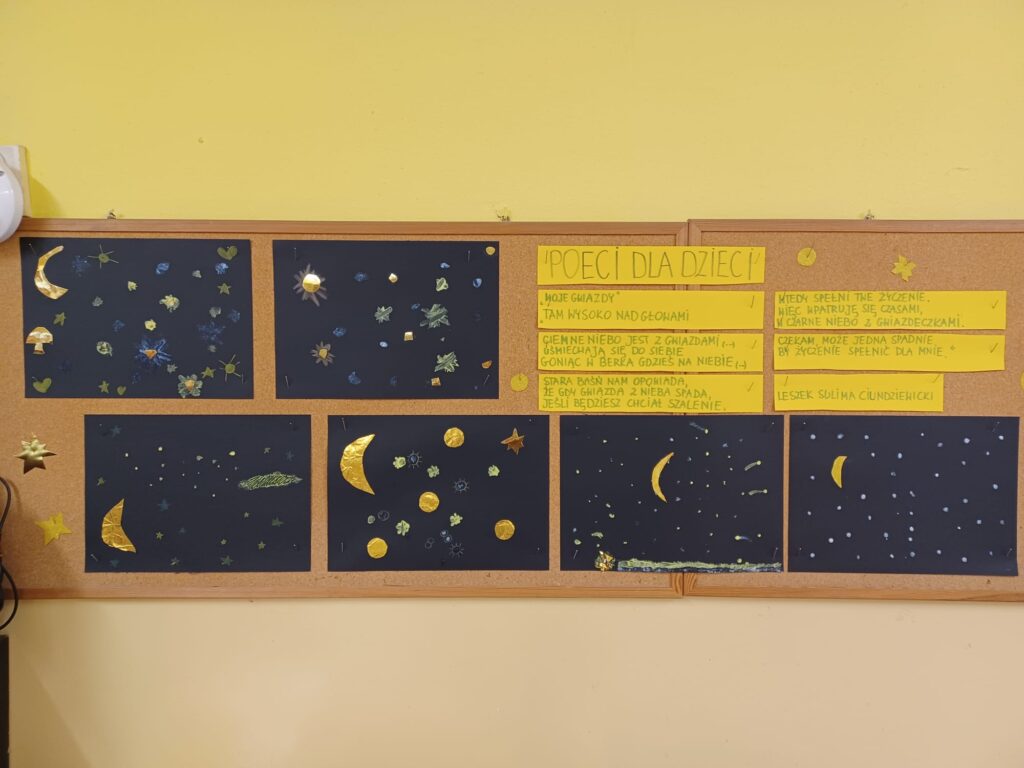 "POECI DLA DZIECI"
"MOJE GWIAZDY"
"TAM WYSOKO NAD GŁOWAMI
CIEMNE NIEBO JEST Z GWIAZDAMI (...)
UŚMIECHAJĄ SIĘ DO SIEBIE
GONIĄC W BERKA GDZIEŚ NA NIEBIE (...)
STARA BAŚŃ NAM OPOWIADA,
ŻE GDY GWIAZDA Z NIEBA SPADA,
JEŚLI BĘDZIESZ CHCIAŁ SZALENIE.
WTEDY SPEŁNI TWE ŻYCZENIE.
WIĘC WPATRUJĘ SIĘ CZASAMI,
W CZARNE NIEBO Z GWIAZDECZKAMI.
CZEKAM, MOŻE JEDNA SPADNIE
BY ŻYCZENIE SPEŁNIĆ DLA MNIE."
LESZEK SULIMA CIUNDZIEWICKI